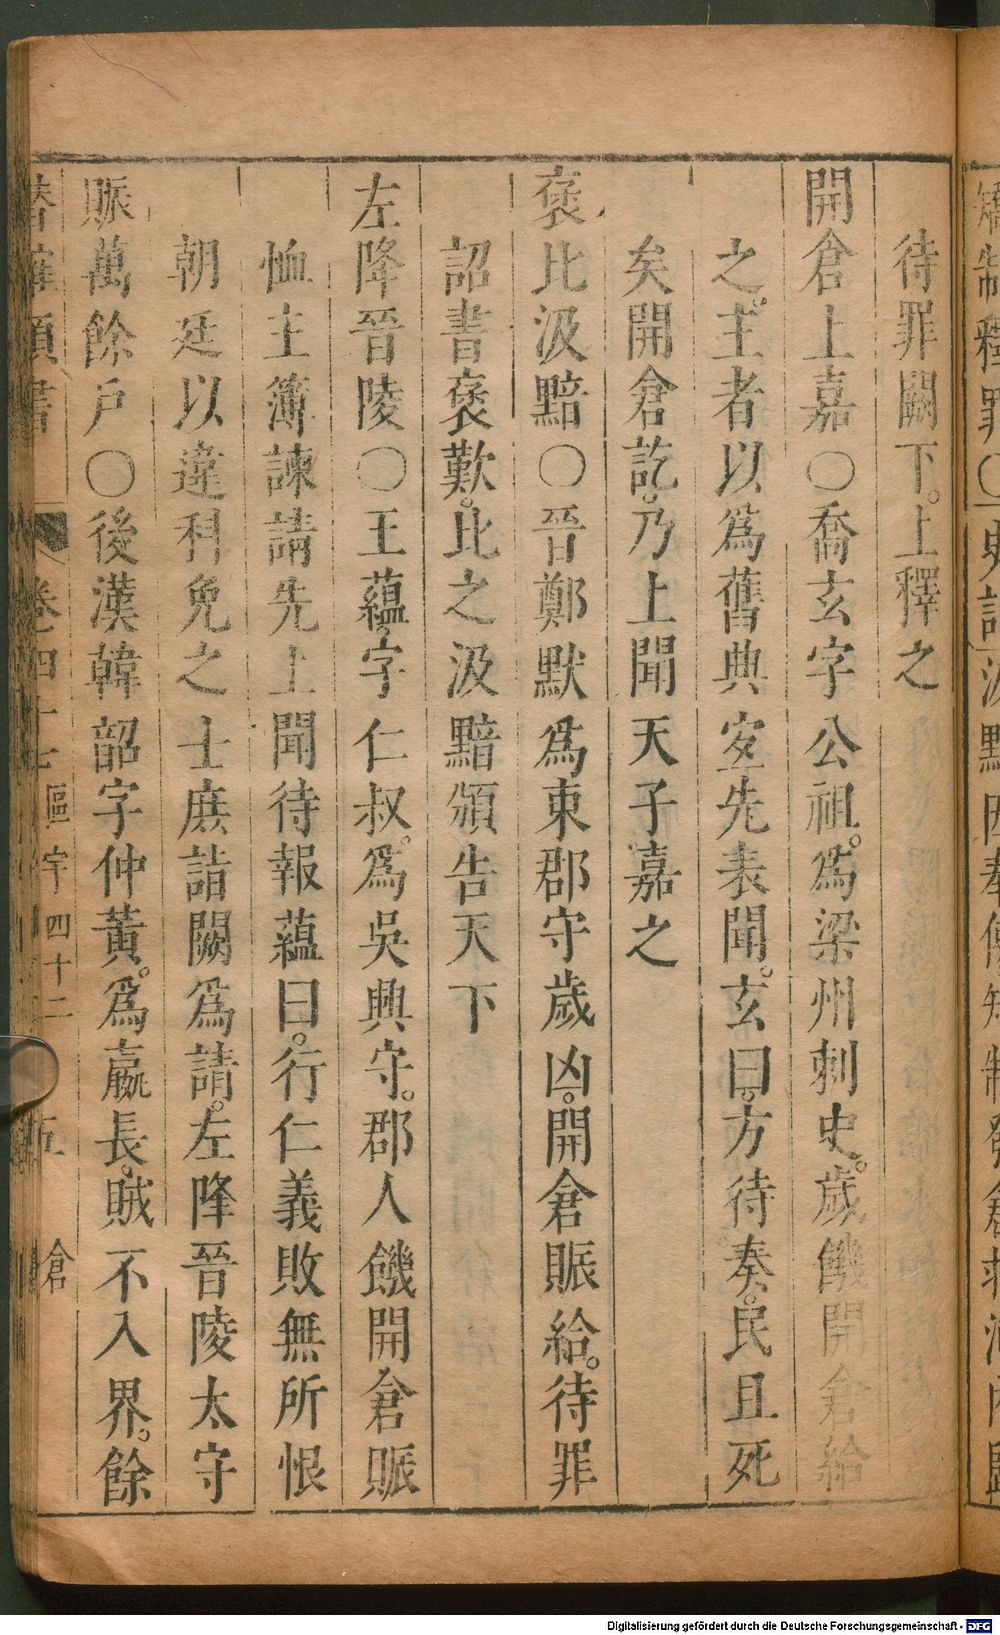 待罪闕下。上釋之
開倉上嘉○喬玄字公祖。爲梁州刺史。歲饑開倉給
之。主者以爲舊典宜先表聞。玄曰。方待奏。民且死
矣開倉訖。乃上聞天子嘉之
褒比汲黯○晉鄭默爲東郡守歲凶。開倉賑給。待罪
詔書褒歎。比之汲黯頒告天下
左降晉陵○王蘊。字仁叔。爲吳興守。郡人饑開倉賑
恤主簿諫請先上聞待報蘊曰。行仁義敗無所恨
朝廷以違科免之士庶詣闕爲請。左降晉陵太守
賑萬餘戶○後漢韓韶字仲黃。爲嬴長。賊不入界。餘
卷四十七 區宇四十二 倉
Digitalisierung gefördert durch die Deutsche Forschungsgemeinschaft - DFG